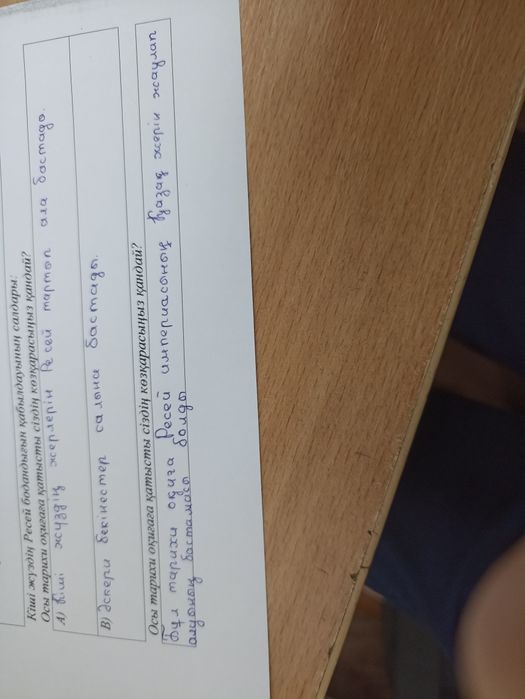 Кіші жүздің Ресей бодандығын қабылдауының салдары:
Осы тарихи оқиғаға қатысты сіздің көзқарасыңыз қандай?
А) Кіші жүздің жерлерін Ресей тартып ала бастады.
В) Әскери бекіністер салына бастады.
Осы тарихи оқиғаға қатысты сіздің көзқарасыңыз қандай?
Бұл тарихи оқиға Ресей империасының Қазақ жерін жаулап
алуының бастамасы болды